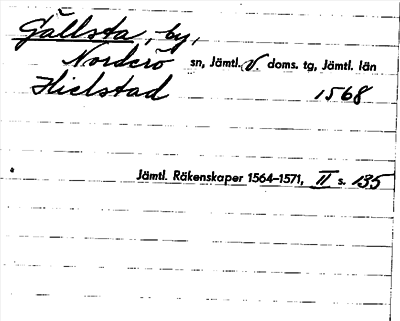 Gällsta, by,
Norderö sn, Jämtl. V. doms. tg, Jämtl. län
Hielstad 1568
Jämtl. Räkenskaper 1564–1571, II s. 135